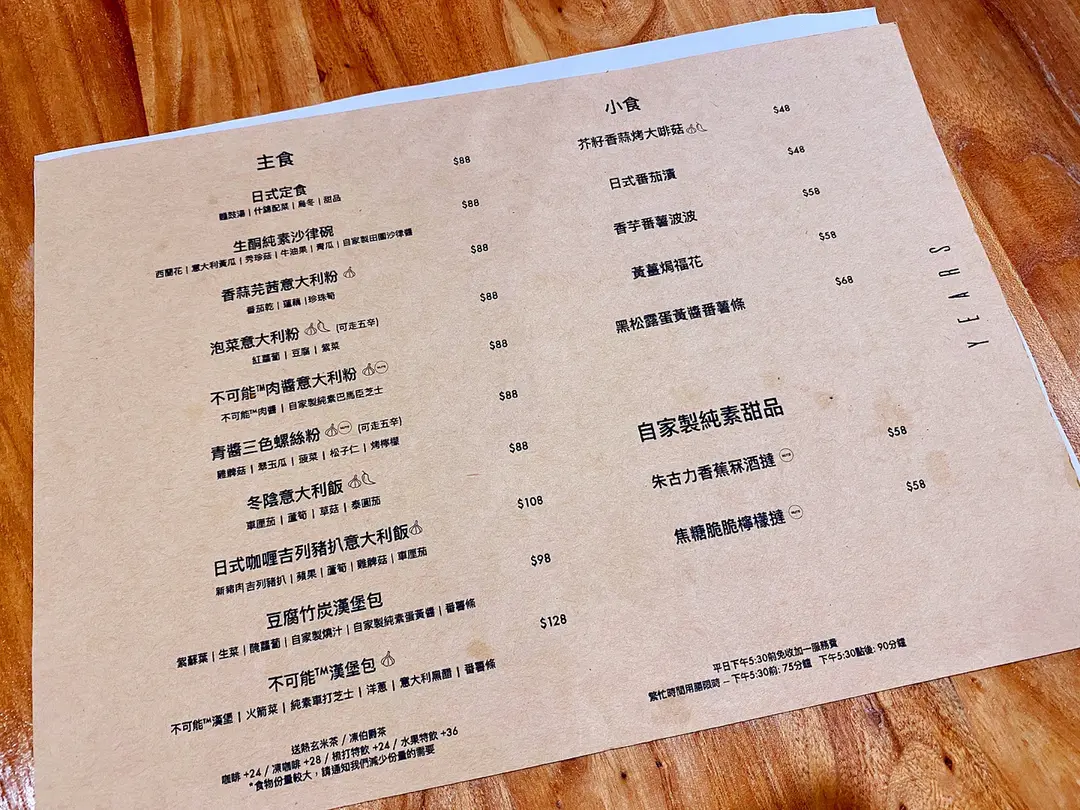 主食
$88
日式定食
麵豉湯 | 什錦配菜 | 烏冬 | 甜品
$88
生酮純素沙律碗
西蘭花 | 意大利黃瓜 | 秀珍菇 | 牛油果 | 青瓜 | 自家製田園沙律醬
$88
香蒜芫茜意大利粉
番茄乾 | 蓮藕 | 珍珠筍
$88
泡菜意大利粉 (可走五辛)
紅蘿蔔 | 豆腐 | 紫菜
$88
不可能™肉醬意大利粉
不可能™肉醬 | 自家製純素巴馬臣芝士
$88
青醬三色螺絲粉 (可走五辛)
雞髀菇 | 翠玉瓜 | 菠菜 | 松子仁 | 烤檸檬
$88
冬陰意大利飯
車厘茄 | 蘆筍 | 草菇 | 泰圓茄
$108
日式咖喱吉列豬扒意大利飯
新豬肉吉列豬扒 | 蘋果 | 蘆筍 | 雞髀菇 | 車厘茄
$98
豆腐竹炭漢堡包
紫蘇葉 | 生菜 | 醃蘿蔔 | 自家製燒汁 | 自家製純素蛋黃醬 | 番薯條
$128
不可能™漢堡包
不可能™漢堡 | 火箭菜 | 純素車打芝士 | 洋蔥 | 意大利黑醋 | 番薯條
送熱玄米茶 / 凍伯爵茶
咖啡 +24 / 凍咖啡 +28 / 梳打特飲 +24 / 水果特飲 +36
*食物份量較大，請通知我們減少份量的需要
小食
$48
芥籽香蒜烤大啡菇
$48
日式番茄漬
$58
香芋番薯波波
$58
黃薑焗福花
$68
黑松露蛋黃醬番薯條
自家製純素甜品
$58
朱古力香蕉冧酒撻
$58
焦糖脆脆檸檬撻
平日下午5:30前免收加一服務費
繁忙時間用膳限時 – 下午5:30前: 75分鐘 下午5:30點後: 90分鐘
YEARS